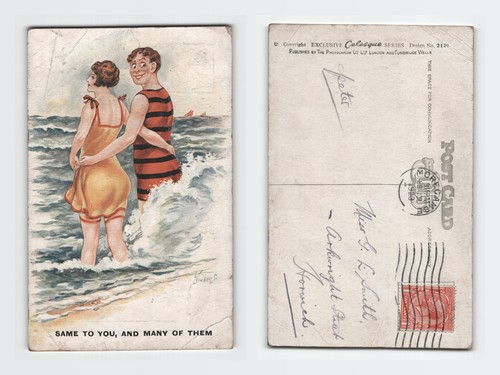 SAME TO YOU, AND MANY OF THEM
Copyright EXCLUSIVE Celesque SERIES Design No. 2120
PUBLISHED BY THE PHOTOCHROM CO LTD LONDON AND TUNBRIDGE WELLS
THIS SPACE FOR COMMUNICATION
POST CARD
Miss G. L. Smith,
Arkwright Street
Horwich.